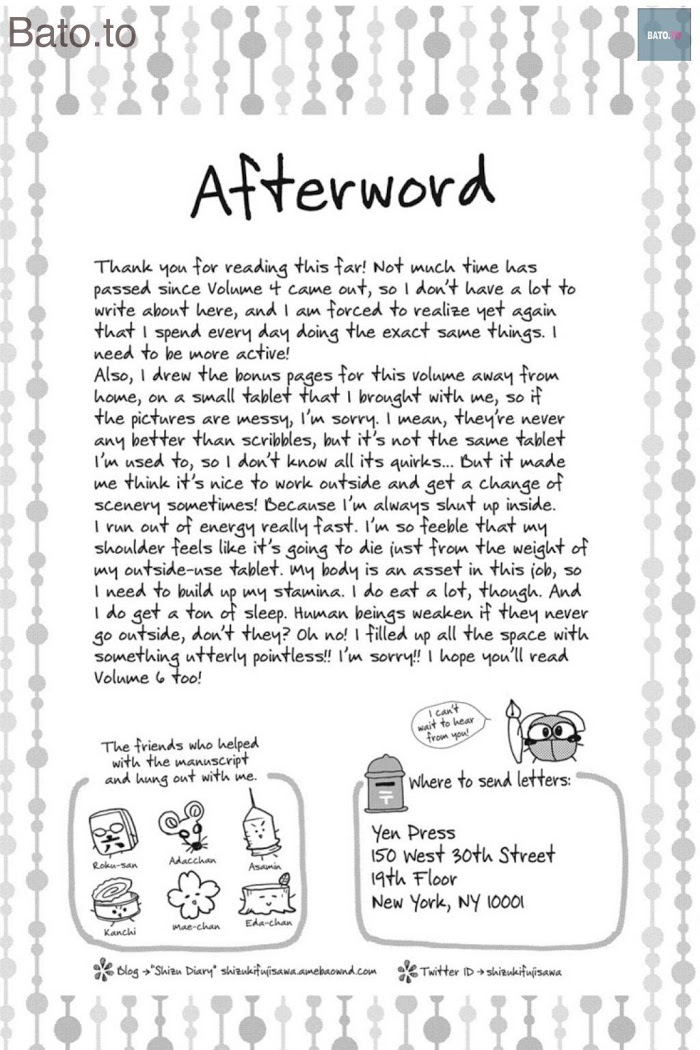 Bato.to
BATO.TO
Afterword
Thank you for reading this far! Not much time has
passed since Volume 4 came out, so I don't have a lot to
write about here, and I am forced to realize yet again
that I spend every day doing the exact same things. I
need to be more active!
Also, I drew the bonus pages for this volume away from
home, on a small tablet that I brought with me, so if
the pictures are messy, I'm sorry. I mean, they're never
any better than scribbles, but it's not the same tablet
I'm used to, so I don't know all its quirks... But it made
me think it's nice to work outside and get a change of
scenery sometimes! Because I'm always shut up inside.
I run out of energy really fast. I'm so feeble that my
shoulder feels like it's going to die just from the weight of
my outside-use tablet. My body is an asset in this job, so
I need to build up my stamina. I do eat a lot, though. And
I do get a ton of sleep. Human beings weaken if they never
go outside, don't they? Oh no! I filled up all the space with
something utterly pointless!! I'm sorry!! I hope you'll read
Volume 6 too!
I can't
wait to hear
from you!
The friends who helped
with the manuscript
and hung out with me.
六
Roku-san
Adacchan
Asamin
Kanchi
Mae-chan
Eda-chan
〒
Where to send letters:
Yen Press
150 West 30th Street
19th Floor
New York, NY 10001
Blog →"Shizu Diary" shizukifujisawa.amebaownd.com
Twitter ID → shizukifujisawa